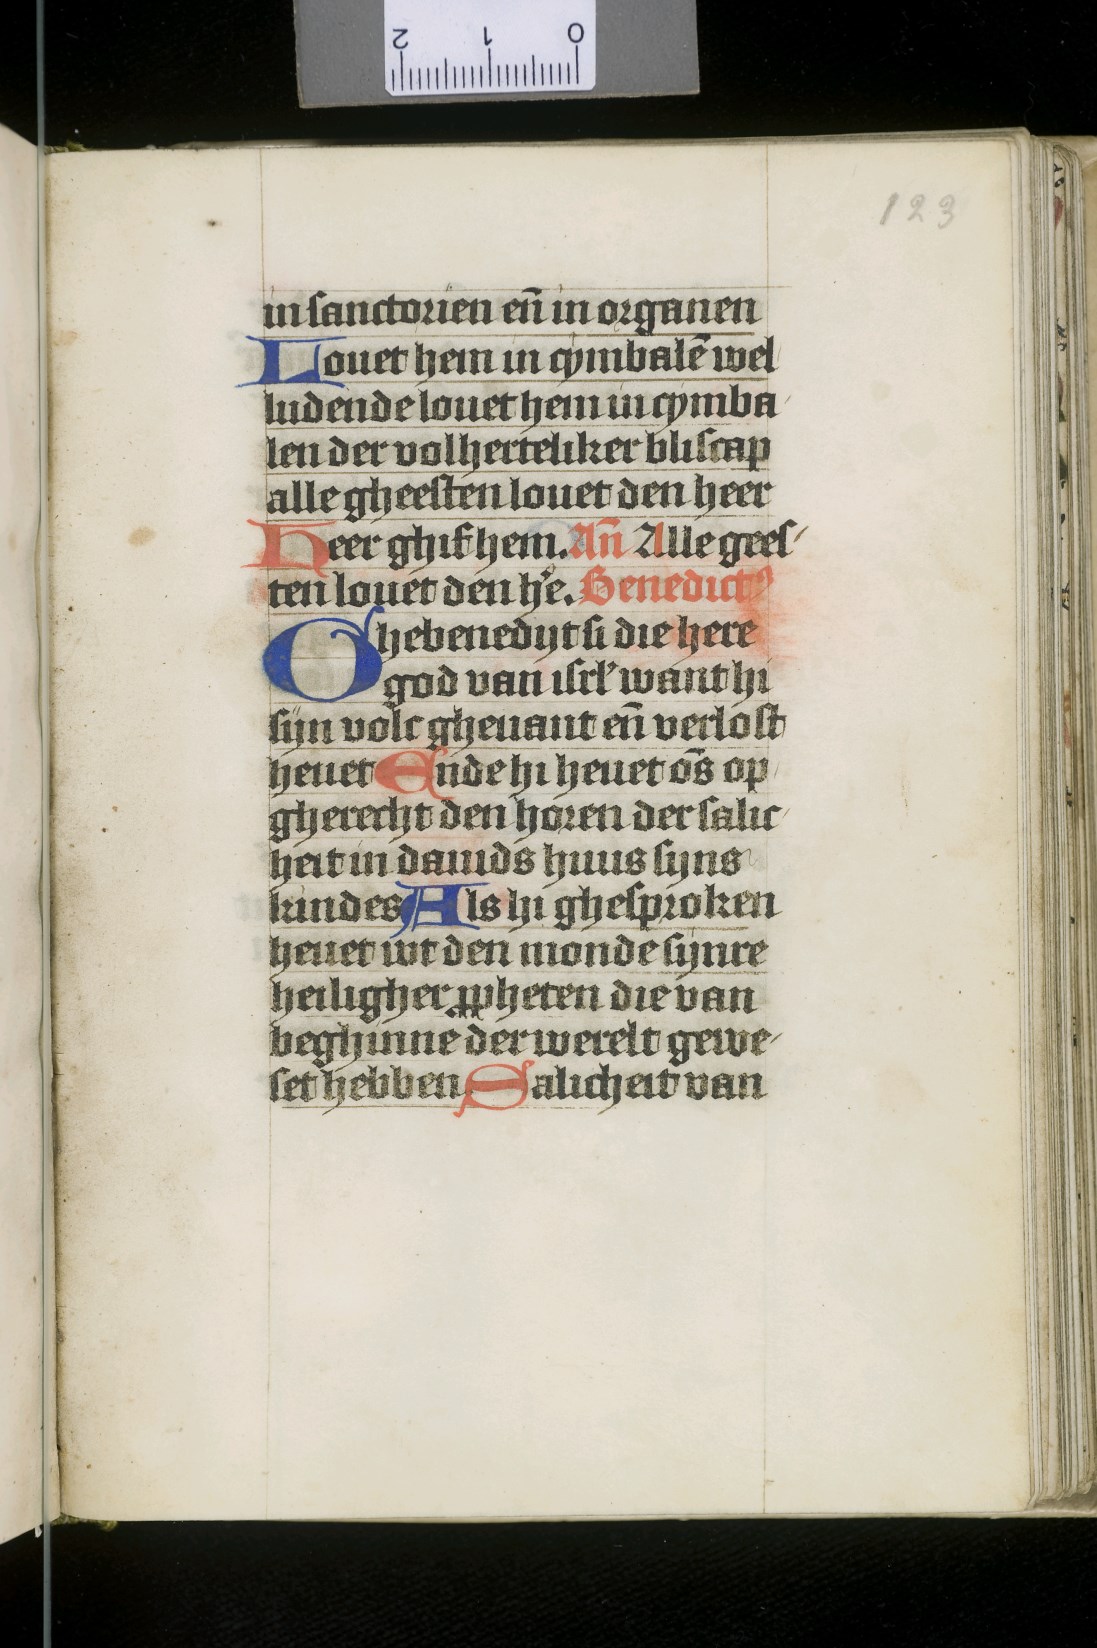 2 1 0
123
in sanctorien en̄ in organen
Louet hem in cymbalē wel
ludende louet hem in cymba
len der volherteliker bliscap
alle gheesten louet den heer
Heer ghif hem. An̄ Alle gees-
ten louet den h'e. Benedictꝰ
Ghebenedijt si die here
god van isrl' want hi
sijn volc gheuant en̄ verlost
heuet Ende hi heuet ōs op
gherecht den horen der salic-
heit in dauids huus sijns
kindes Als hi ghesproken
heuet wt den monde sijnre
heiligher ꝓpheten die van
beghinne der werelt gewe-
set hebben Salicheit van